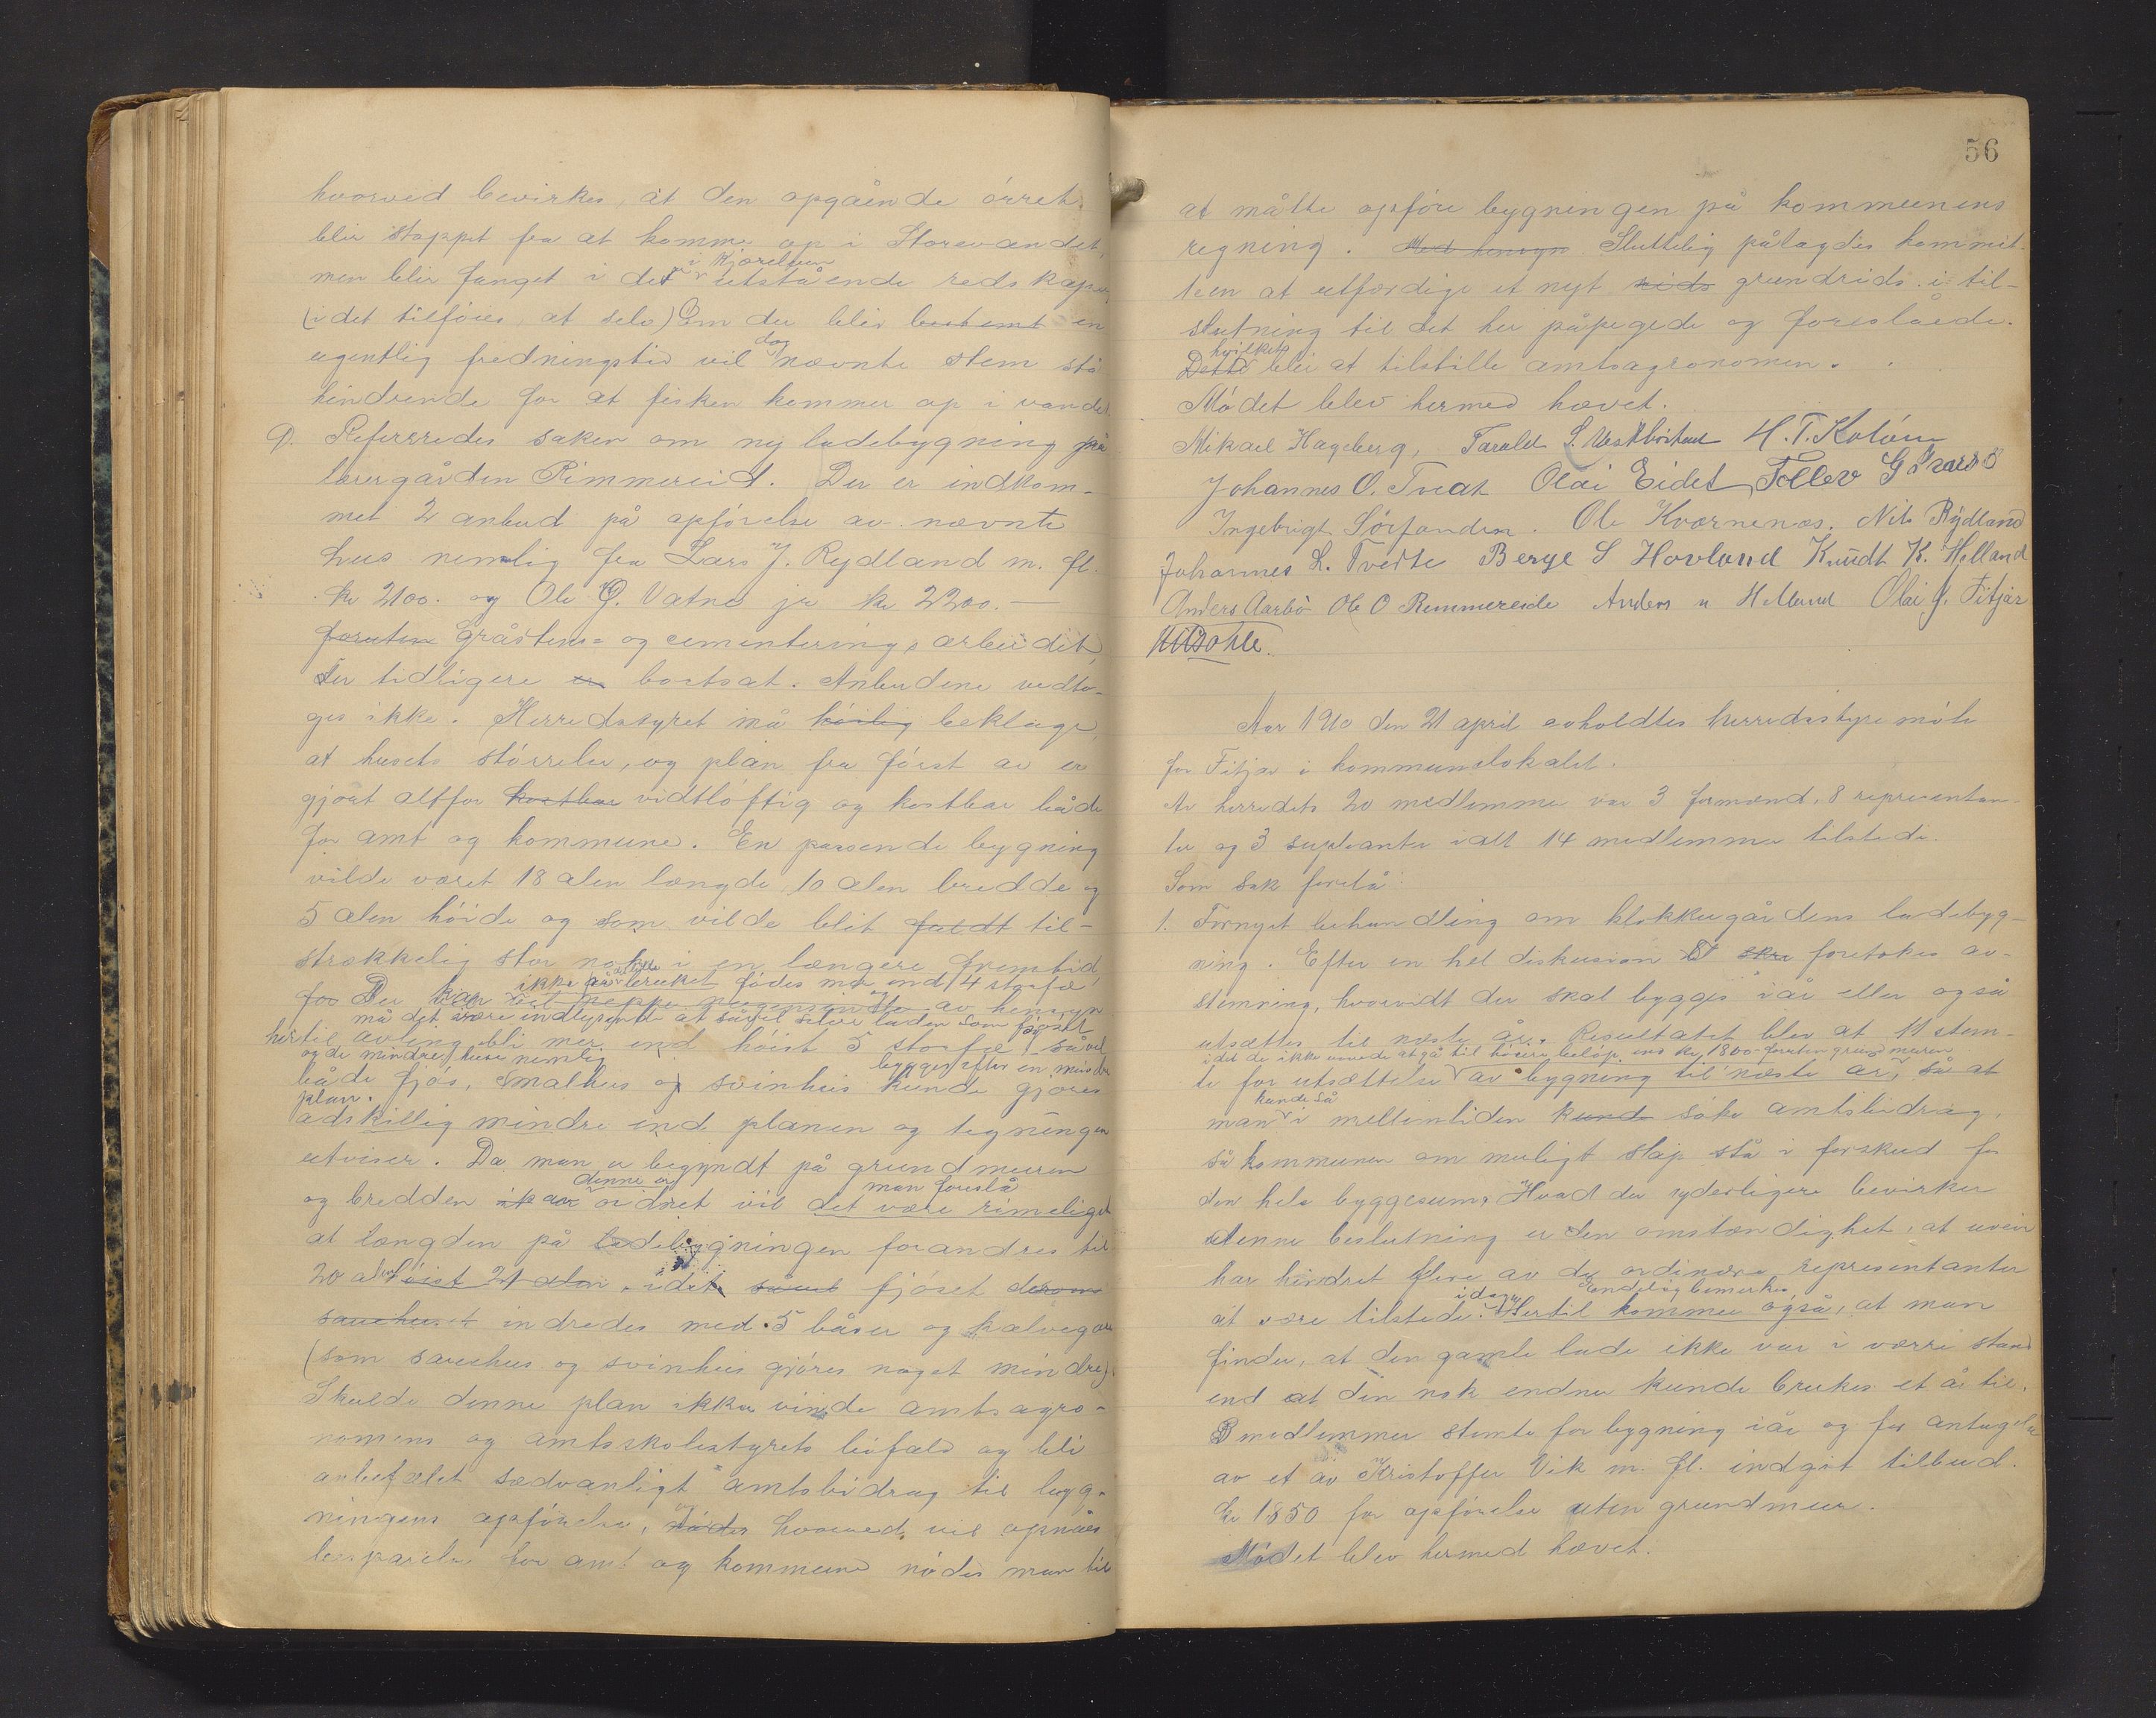 hvorved bevirkes, at den opgående örret
blir stoppet fra at komme op i Storevandet,
i kjærelven
men blir fanget i det utstående redskaper
(i det tilföies, at selv) Om der blir bestemt en
dog
egentlig fredningstid vil nævnte stem stå
hindrende for at fisken kommer op i vandet.
9. Refereredes saken om ny ladebygning på
lærergården Rimmereid. Der er indkom-
met 2 anbud på opförelse av nævnte
hus nemlig fra Lars J. Rydland m. fl.
kr 2100. og Ole O. Vatne jr kr 2200.—
foruten gråstens- og cementerings arbeidet,
der tidligere er bortsat. Anbudene vedto-
ges ikke. Herredsstyret må höilig beklage,
at husets störrelse, og plan fra först av er
gjort altfor kostbar vidtlöftig og kostbar både
for amt og kommune. En passende bygning
vilde været 18 alen længde 10 alen bredde og
5 alen höide og som vilde blit fuldt til-
strækkelig stor nok i en længere fremtid
ikke på bruket födes mer end 4 storfæ
for Der kan av hensyn
må det være indlysende at såvel selve laden som fjöset
hertil avling bli mer end höist 5 storfæ såvel
og de mindre huse nemlig bygges efter en mindre
både fjös, smalhus og svinhus kunde gjöres
plan.
adskillig mindre end planen og tegningen
utviser. Da man er begyndt på grundmuren
denne og man foreslå
og bredden ikke ordnet vil det være rimeligst
at længden på ladebygningen forandres til
20 alen höist 21 alen, idet såvel fjöset derom
sauehuset indredes med 5 båser og kalvegar
(som sauehus og svinhus gjöres noget mindre).
Skulde denne plan ikke vinde amtsagro-
nomens og amtsskolestyrets bifald og bli
anbefalet sædvanligt amtsbidrag til byg-
ningens opförelse, nödes hvorved vil opnåes
besparelse for amt og kommune nödes man til
56
at måtte opföre bygningen på kommunens
regning. Med hensyn Sluttelig pålagdes kommit-
teen at utfærdige et nyt rids grundrids i til-
slutning til det her påpegede og foreslåede.
hvilket
Dette blir at tilstille amtsagronomen.
Mödet blev hermed hævet.
Mikael Hageberg, Tarald S. Vestböstad H. T. Kolöen
Johannes O. Tveit Olai Eidet, Tollev G
Ingebrigt Sörfonden. Ole Kværnenæs. Nils Rydland
Johannes L. Tveite Berge S Hovland Knudt K. Helland
Anders Aarbö Ole O Rimmereide Anders n Helland Olai J. Fitjar

Aar 1910 den 21 april avholdtes herredsstyremöte
for Fitjar i kommunelokalet.
Av herredets 20 medlemmer var 3 formænd, 8 represantan-
ter og 3 supleanter i alt 14 medlemmer tilstede.
Som sak forelå:
1. Fornyet behandling om klokkergårdens ladebyg-
ning. Efter en hel diskusion foretokes av-
stemning, hvorvidt der skal bygges i år eller også
utsættes til næste år. Resultatet blev at 11 stem-
idet de ikke vovede at gå til höiere belöp ens kr 1800 foruten grundmuren
te for utsættelse av bygning til næste år, så at
kunde så
man i mellemtiden kunde söke amtsbidrag,
så kommunen om muligt slap stå i forskud for
den hele byggesum. Hvad der yderligere bevirker
denne beslutning er den omstændighet, at uveir
har hindret flere av de ordinære representanter
idag Endelig bemerkes
at være tilstede. Hertil kommer også, at man
finder, at den gamle lade ikke var i værre stand
end at den nok endnu kunde brukes et år til.
3 medlemmer stemte for bygning iår og for antagelse
av et av Kristoffer Vik m. fl. indgit tilbud.
kr 1850 for opförelse uten grundmur.
Mödet blev hermed hævet.